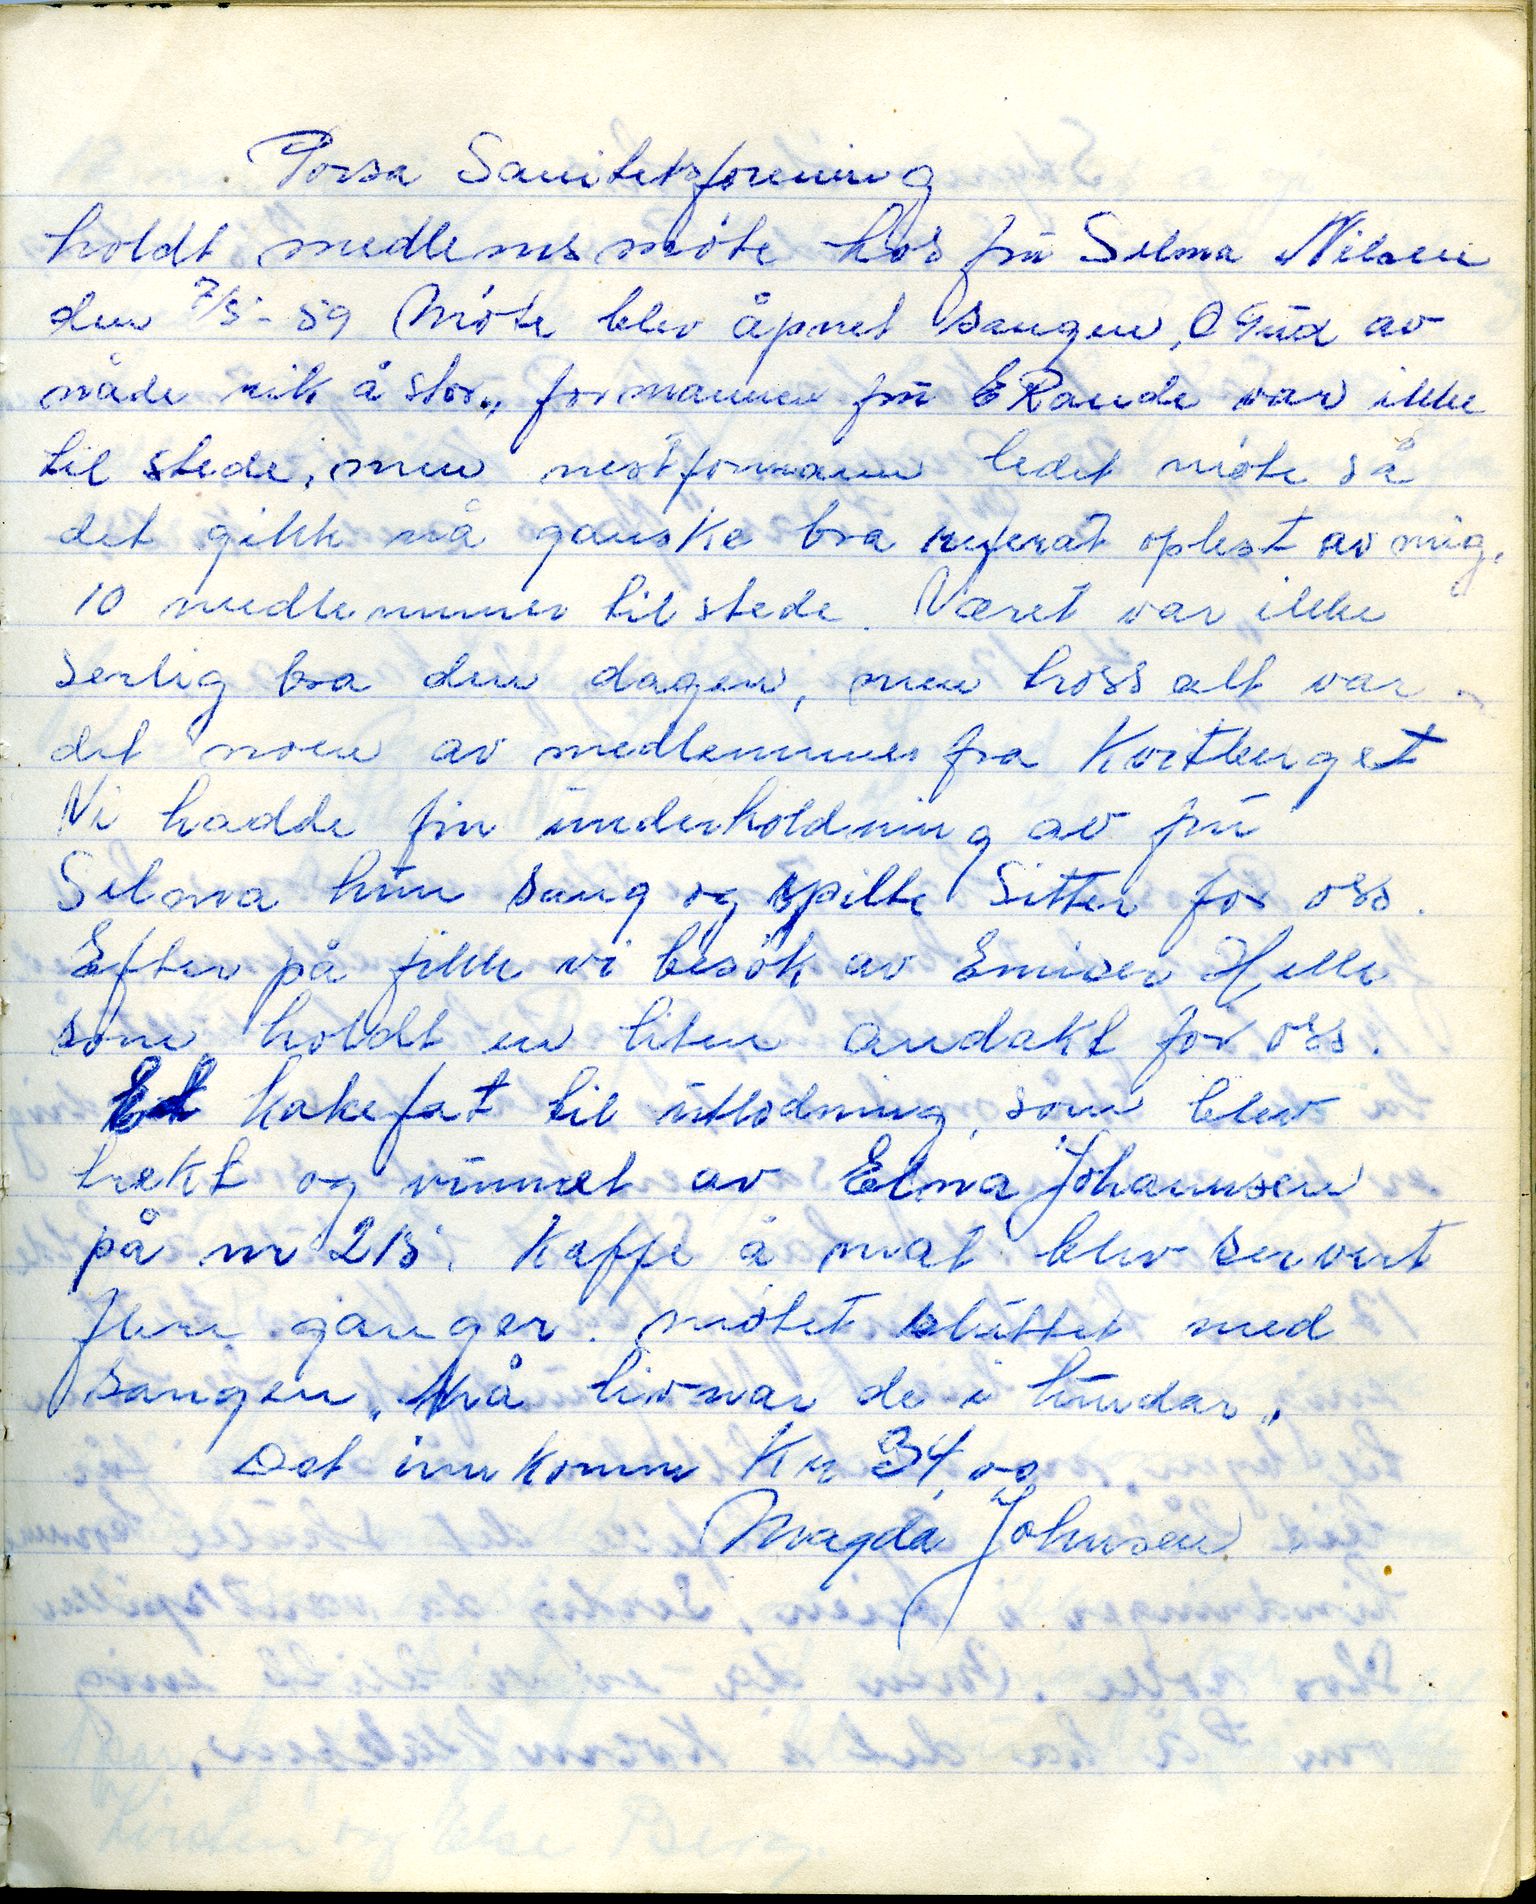 Porsa Sanitetsforening
holdt medlemsmöte hos frú Selma Nilsen
den 7/5-59 Möte blev åpnet sangen, O Gúd av
nåde rik å stor„ formannen frú E Rande var ikke
til stede, men nestformann ledet möte så
det gikk nå ganske bra referat oplest av mig.
10 medlemmer til stede. Været var ikke
serlig bra den dagen, men tross alt var
det noen av medlemmer fra Kvitberget
Vi hadde fin únderholdning av frú
Selma hún sang og spilte Sitter for oss.
Efter på fikk vi besök av Emisær Helle
som holdt en liten andakt for oss.
Et kakefat til útlodning, som blev
trekt og vúnnet av Elma Johannsen
på nr 215. Kaffe å mat blev servert
flere ganger. Mötet slúttet med
sangen „Nå livnar de i lúndar„
Det innkomm Kr 34,00
Magda Johnsen